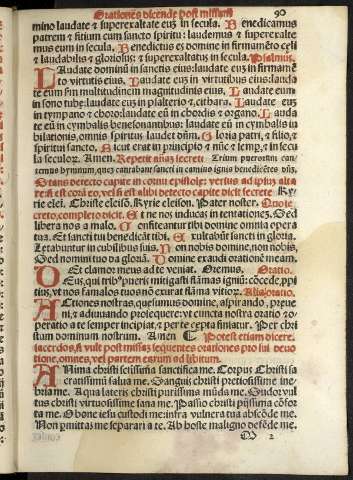 Orationes dicende post missam 90
mino laudate & superexaltate eum in secula. Benedicamus
patrem & filium cum sancto spiritu: laudemus & superexalte
mus eum in secula. Benedictus es domine in firmamēto celi
& laudabilis & gloriosus: & superexaltatus in secula. Psalmus.
LAudate dominū in sanctis eius: laudate eum in firmamē
to virtutis eius. Laudate eum in virtutibus eius: lauda
te eum scdm multitudinem magnitudinis eius. Laudate eum
in sono tube: laudate eum in psalterio &, cithara. Laudate eum
in tympano & choro: laudate eū in chordis & organo. Lauda
te eū in cymbalis benesonantibus: laudate eū in cymbalis iu
bilationis, omnis spiritus laudet dūm. Gloria patri, & filio, &
spiritui sancto. Sicut erat in principio & nūc & semp, & in secu
la seculorum. Amen. Repetit añam secreti Trium puerorum can
temus hymnum, quem cantabant sancti in camino ignis benedicētes dñm.
Stans detecto capite in cornu epistole: versus ad ipsum alta
re si est cora eo, vel si est alibi detecto capite dicit secrete Ky
rie elei. Christe eleisō. Kyrie eleison. Pater noster. Quo se
creto, completo dicit. Et ne nos inducas in tentationes. Sed
libera nos a malo. Confiteantur tibi domine omnia opera
tua. Et sancti tui benedicāt tibi. Exultabūt sancti in gloria.
Letabuntur in cubilibus suis. Non nobis domine, non nobis,
Sed nomini tuo da gloriā. Domine exaudi orationē meam.
Et clamor meus ad te veniat. Oremus. Oratio.
DEus, qui tribus pueris mitigasti flāmas igniū: cōcede, ppi
tius, vt nos famulos tuos nō exurat flāma vitiorum. Alia oratio.
ACtiones nostras, quesumus domine, aspirando, preue
ni, & adiuuando prosequere: vt cuncta nostra oratio & o-
peratio a te semper incipiat, & per te cepta finiatur. Per chri
stum dominum nostrum. Amen Potest etiam dicere
sacerdos, si vult post missam sequentes orationes pro sui deuo
tione, omnes, vel partem earum ad libitum.
ANima christi sctissima sanctifica me. Corpus Christi sa
cratissimū salua me. Sanguis christi pretiosissime ine
bria me. Aqua lateris christi purissima mūda me. Sudor vul
tus christi virtuosissime sana me. Passio christi pijssima cōfor
ta me. O bone iesu custodi me: infra vulnera tua abscōde me.
Non pmittas me separari a te. Ab hoste maligno defēde me.
2